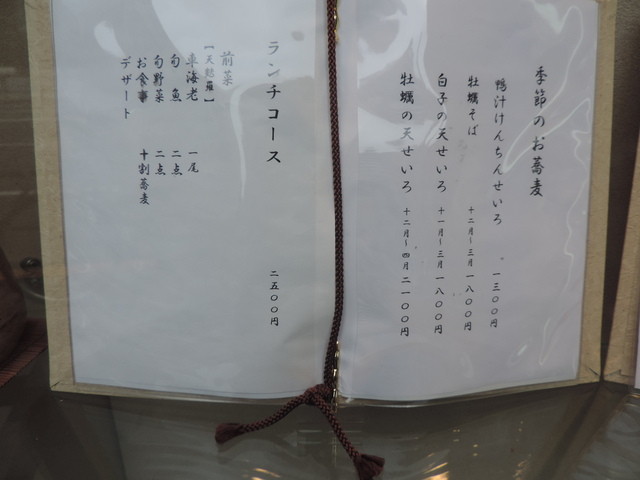 季節のお蕎麦
鴨汁けんちんせいろ 一三〇〇円
牡蠣そば 十二月～三月 一八〇〇円
白子の天せいろ 十一月～三月 一八〇〇円
牡蠣の天せいろ 十二月～四月 二一〇〇円
ランチコース 二五〇〇円
前菜
【天麩羅】
車海老 一尾
旬魚 二点
旬野菜 二点
お食事 十割蕎麦
デザート